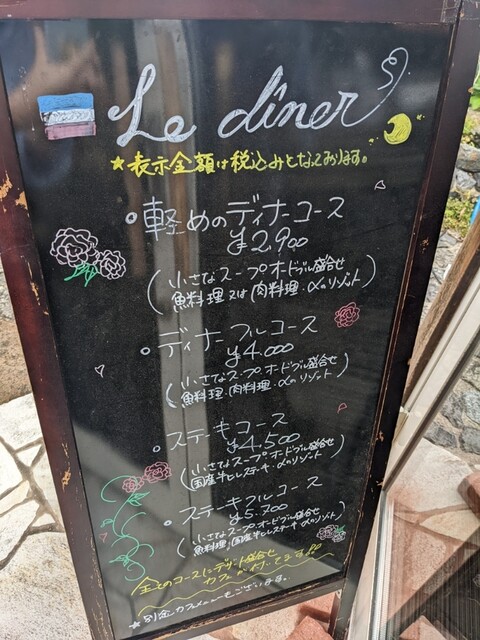 Le dîner
★表示金額は税込みとなっております。
軽めのディナーコース
¥2,900
(小さなスープ オードブル盛合せ
魚料理又は肉料理・〆のリゾット)
ディナーフルコース
¥4.000
(小さなスープ オードブル盛合せ
魚料理・肉料理・〆のリゾット)
ステーキコース
¥4.500
(小さなスープ オードブル盛合せ
国産牛ヒレステーキ・〆のリゾット)
ステーキフルコース
¥5.700
(小さなスープ・オードブル盛合せ
魚料理・国産牛ヒレステーキ 〆のリゾット)
全てのコースにデザート盛合せ
カフェが付いてます!!
★別途カフェメニューもございます。